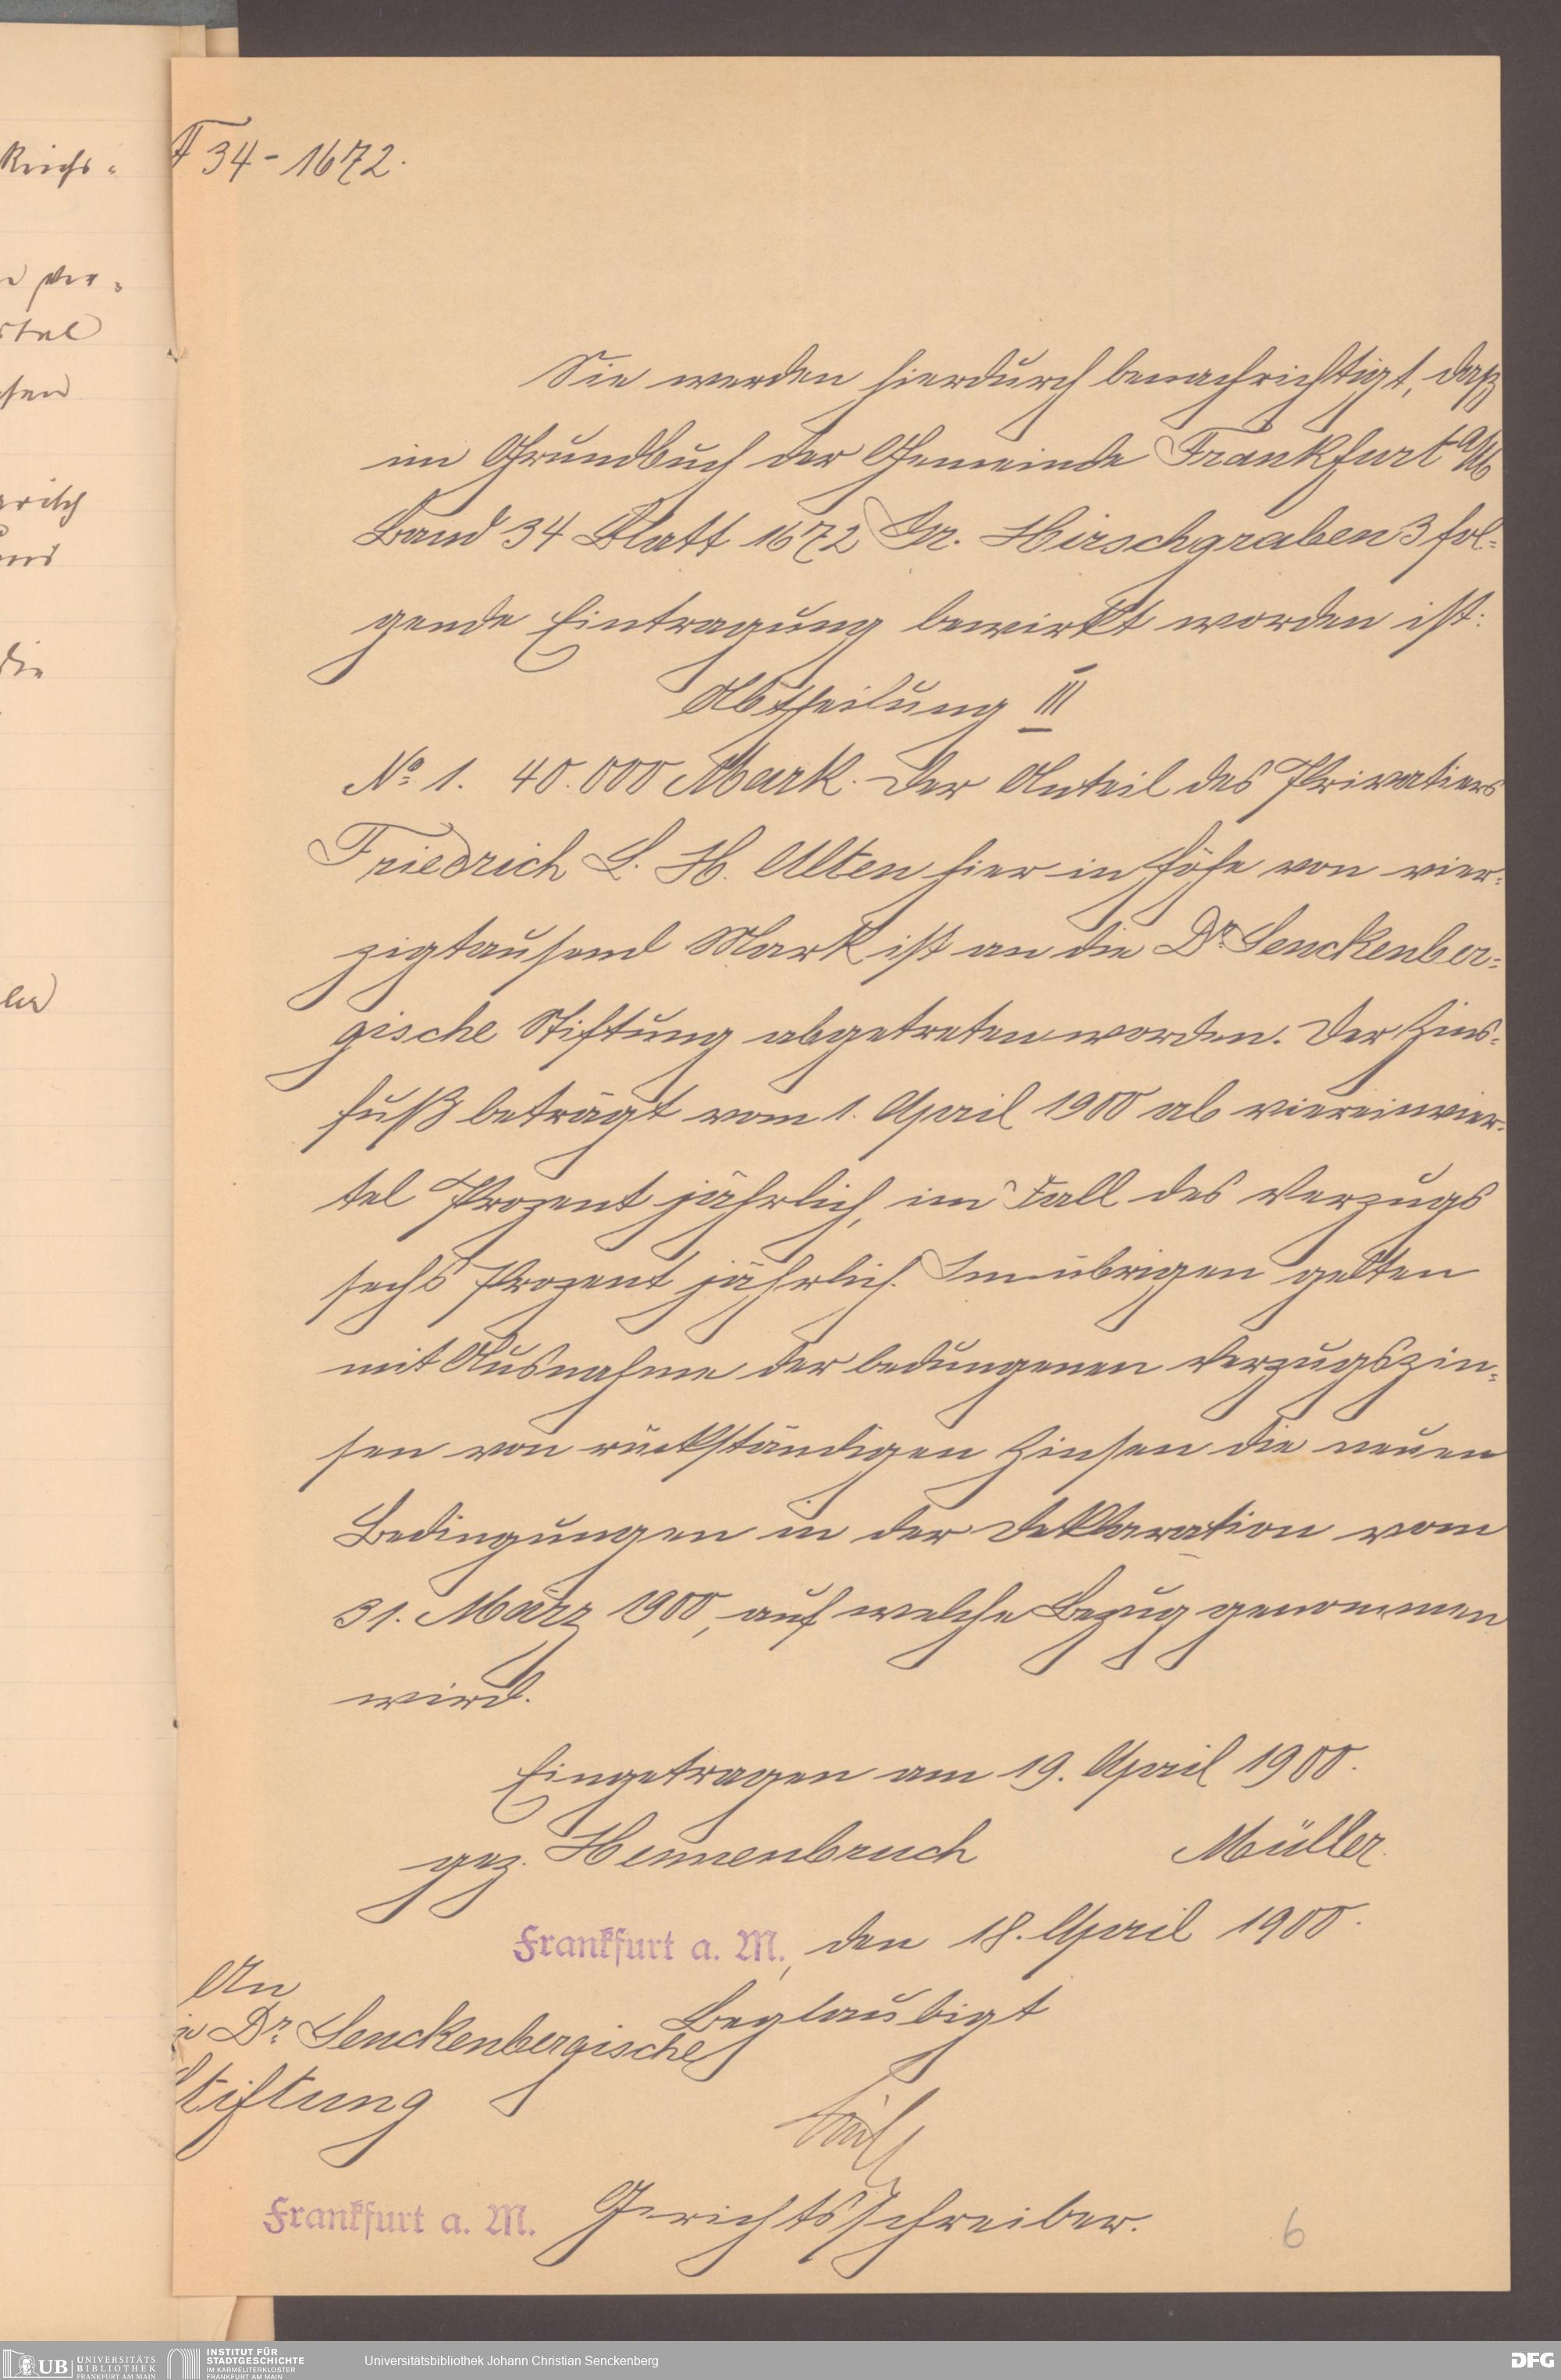 Reichs-
ver-
die
F 34 - 1672.
Sie werden hierdurch benachrichtigt, daß
im Grundbuch der Gemeinde Frankfurt a/M
Band 34 Blatt 1672 Gr. Hirschgraben 3 fol-
gende Eintragung bewirkt worden ist:
Abtheilung III
No 1. 40.000 Mark. Der Anteil des Privatiers
Friedrich L. H. Alten hier in Höhe von vier-
zigtausend Mark ist an die Dr. Senckenber-
gische Stiftung abgetreten worden. Der Zins-
fuß beträgt vom 1. April 1900 ab viereinvier-
tel Prozent jährlich, im Fall des Verzugs
sechs Prozent jährlich. Im übrigen gelten
mit Ausnahme der bedungenen Verzugszin-
sen von rückständigen Zinsen die neuen
Bedingungen in der Deklaration vom
31. März 1900, auf welche Bezug genommen
wird.
Eingetragen am 19. April 1900.
gez. Hennenbruch Müller.
Frankfurt a. M., den 18. April 1900.
An
Beglaubigt
Dr. Senckenbergische
Stiftung
Frankfurt a. M. Gerichtsschreiber.
6
UB UNIVERSITÄTS
BIBLIOTHEK
FRANKFURT AM MAIN
INSTITUT FÜR
STADTGESCHICHTE
IM KARMELITERKLOSTER
FRANKFURT AM MAIN
Universitätsbibliothek Johann Christian Senckenberg
DFG